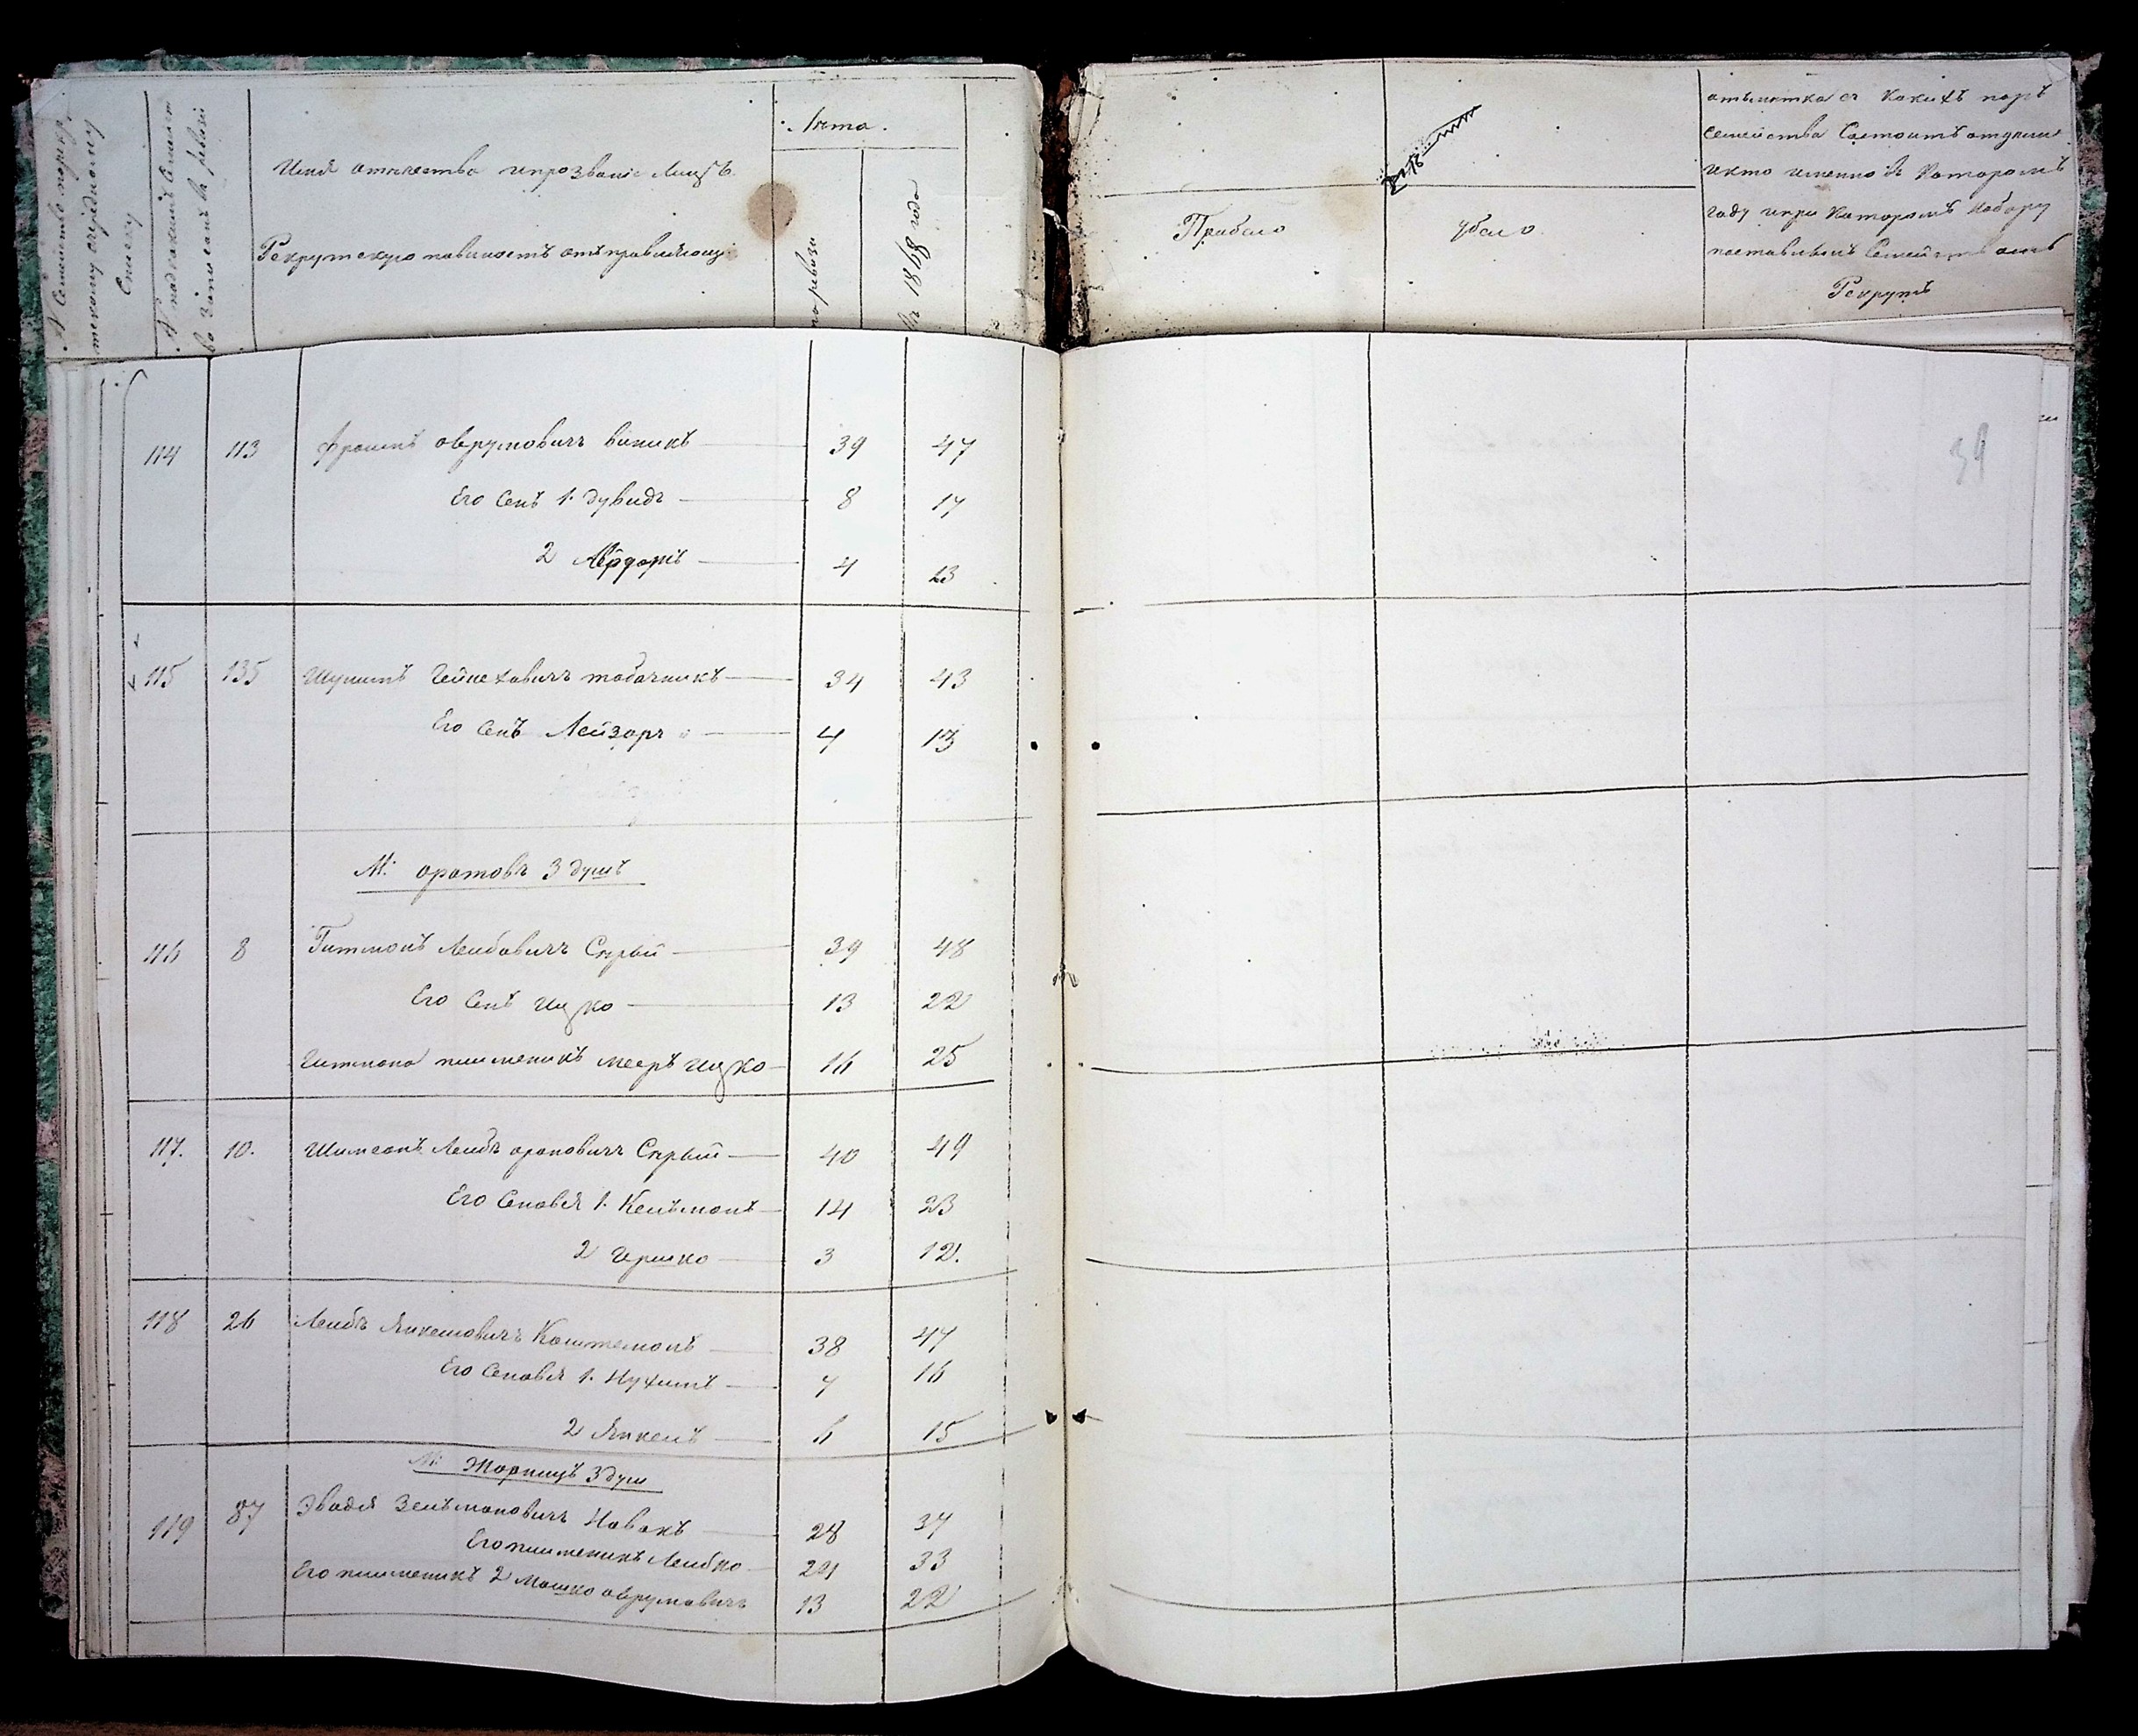 № Семейства по рекру
тскому очередному
Списку
№ под какимъ Семейст
во записанъ въ ревизіи
Имя отчество и прозваніе Лицъ
Рекрутскую повинность отправляющ
Лета.
по ревизи
въ 1868 году
Прибыло
убыло
отъметка съ какихъ поръ
семейство Состоитъ отдельн
и кто именно въ Которомъ
году и при Которомъ Набору
поставленъ Семействомъ
Рекрутъ
39
114 113 Фроимъ аврумовичъ виникъ 39 47
Его Сенъ 1. дувидъ 8 17
2 4 13
115 135 Шулимъ Гейнеховичъ табачникъ 34 43
Его Сенъ Лейзоръ 4 13
М: оратовъ 3 душъ
116 8 Гитманъ Лейбовичъ Серый 39 48
Его Сенъ Ицко 13 22
Гитмона племеникъ мееръ ицко 16 25
117. 10. Шимсонъ Лейбъ ароновичъ Серый 40 49
Его Сеновя 1. Кельмонъ 14 23
2 Гершко 3 12.
118 26 Лейбъ Янкелювичъ 38 47
Его Сеновя 1. Нухимъ 7 16
2 Янкель 6 15
М: Жорнищъ 3 душ
119 87 Эвадя Зельмоновичъ Новакъ 28 37
Его племеникъ Лейбко 24 33
Его племеникъ 2 Мошко аврумовичъ 13 22